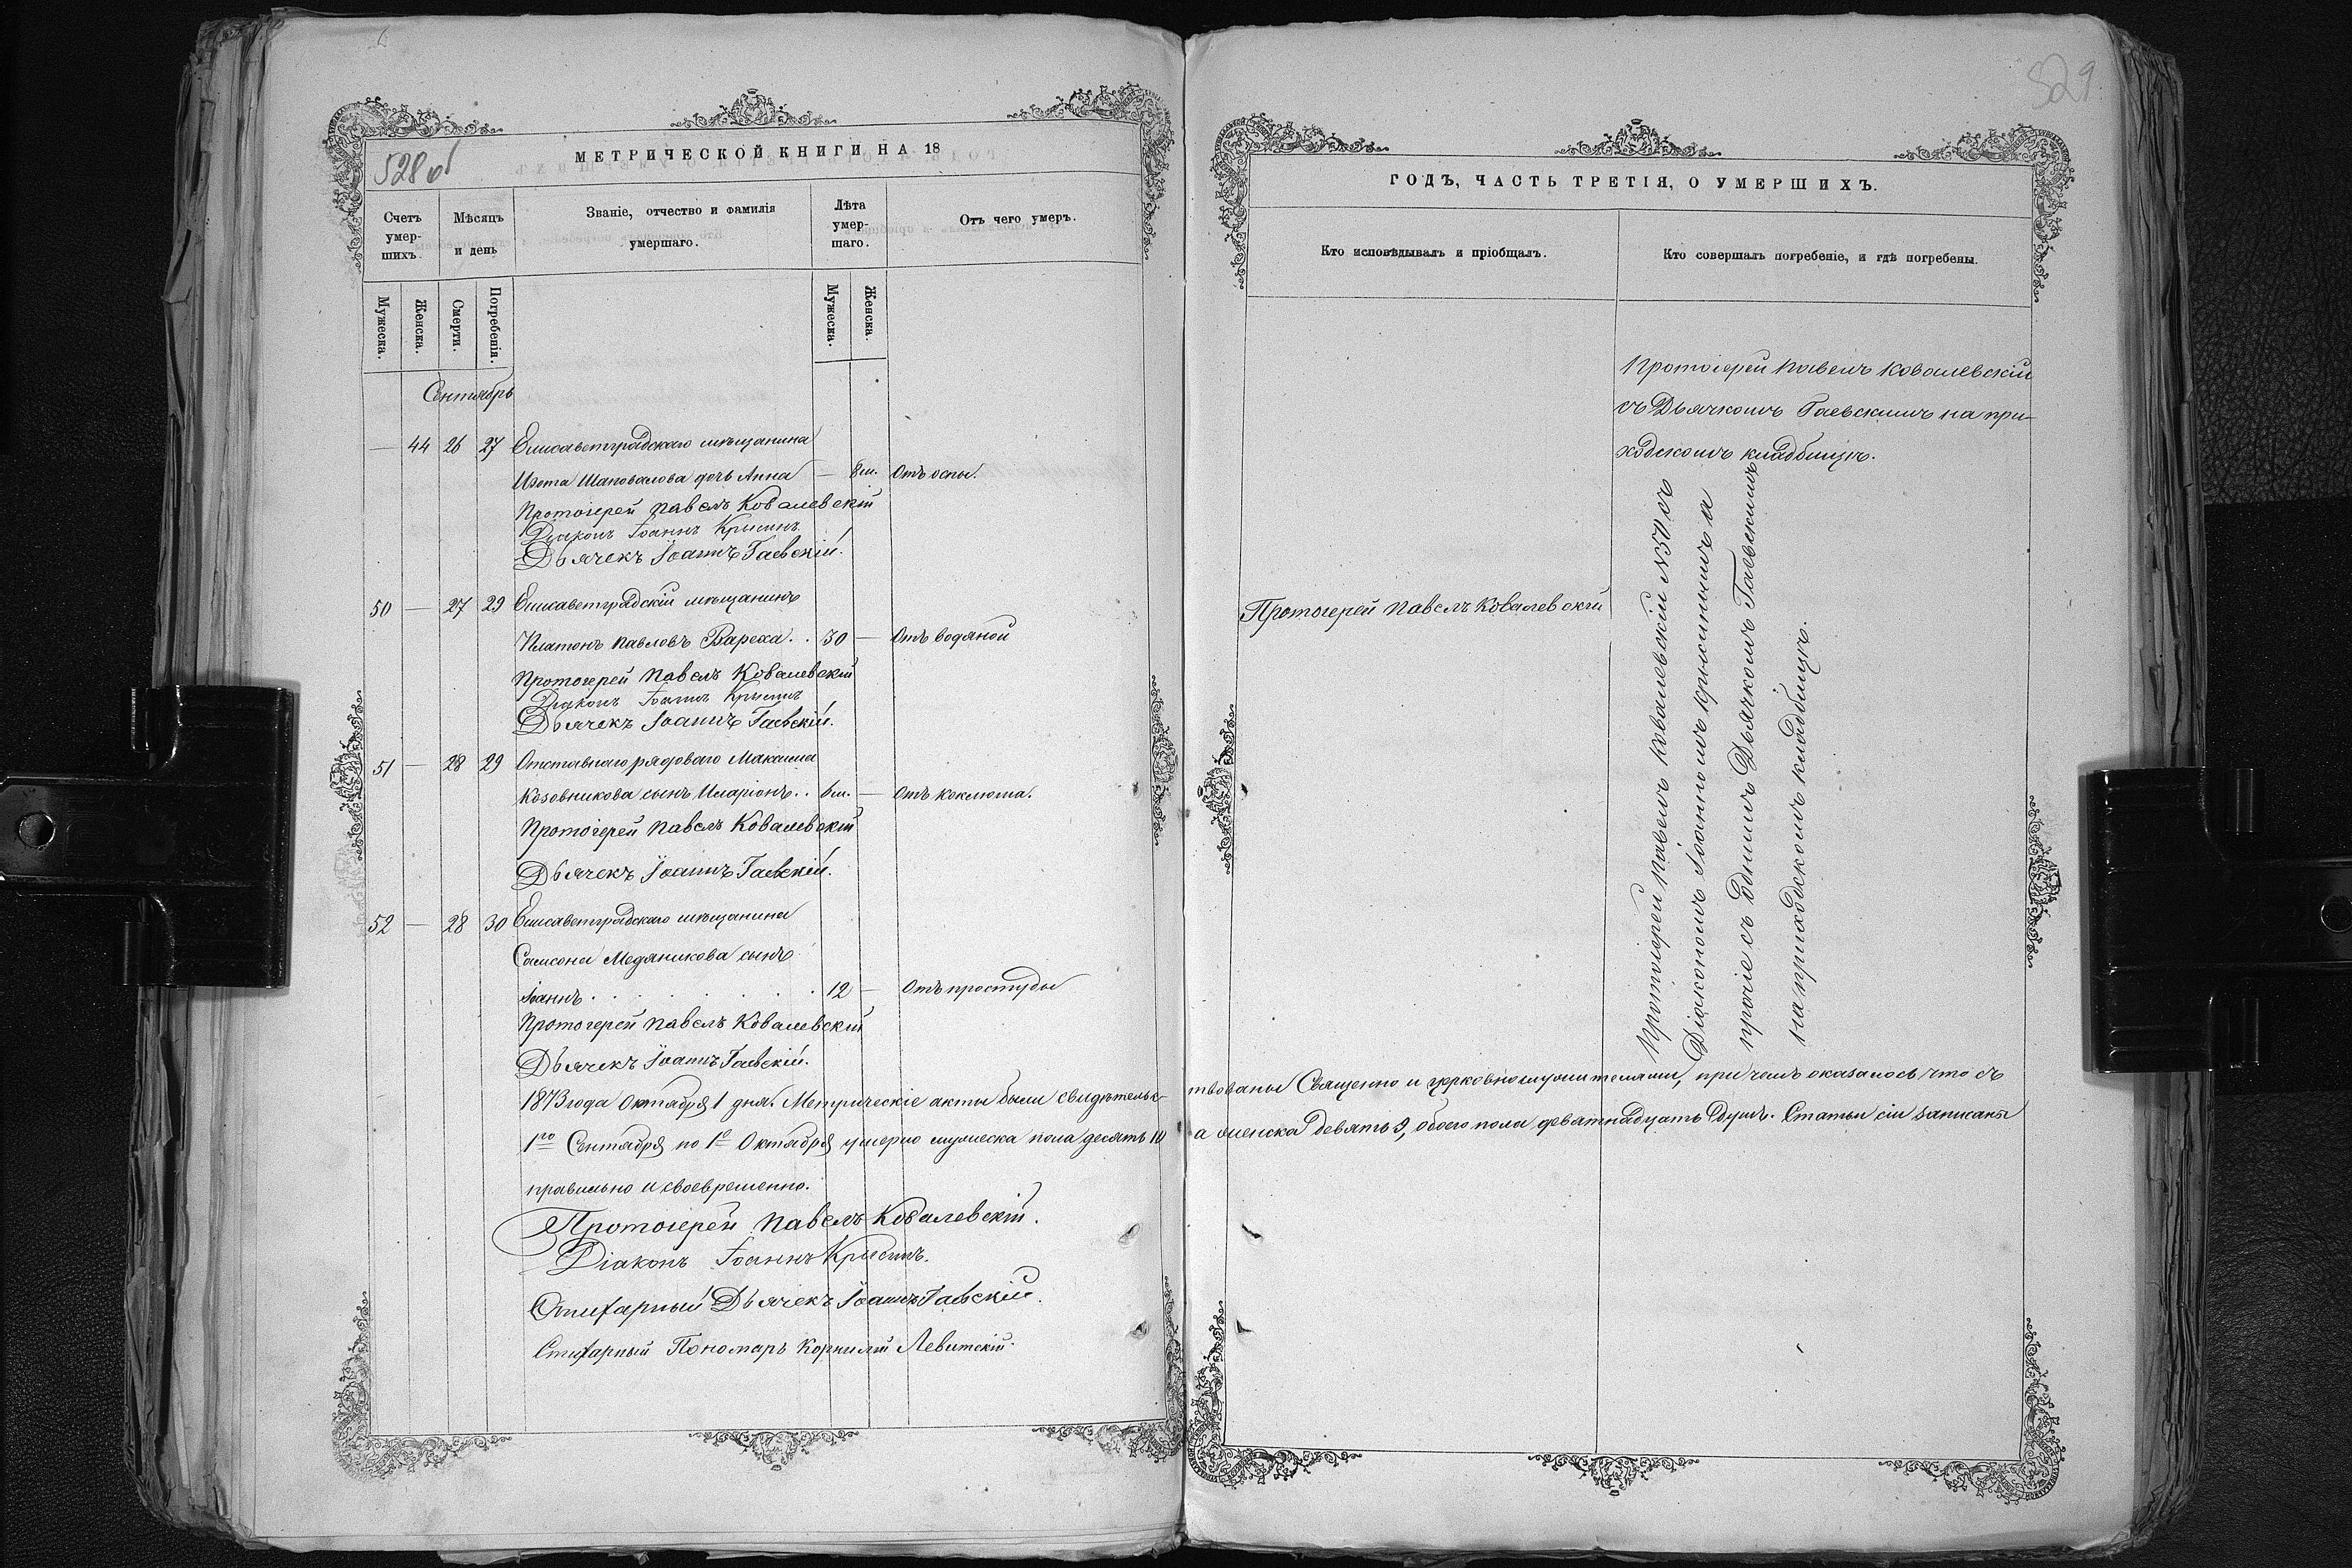 528 об
МЕТРИЧЕСКОЙ КНИГИ НА 18
Счетъ умер-шихъ.
Мѣсяцъ и день
Званіе, отчество и фамилія умершаго.
Лѣта умер-шаго.
Отъ чего умеръ.
Мужеска.
Женска.
Смерти.
Погребенія.
Мужеска.
Женска.
Сентябрь
— 44 26 27 Елисаветградскаго мѣщанина
Изота Шаповалова дочь Анна — 8 м. Отъ оспы.
Протоіерей Павелъ Ковалевскій
Діаконъ Іоаннъ Крысинъ
Дьячекъ Іоаннъ Гаевскій.
50 — 27 29 Елисаветградскій мѣщанинъ
Платонъ Павловъ Вареха . . 30 — Отъ водяной
Протоіерей Павелъ Ковалевскій
Діаконъ Іоаннъ Крысинъ
Дьячекъ Іоаннъ Гаевскій.
51 — 28 29 Отставнаго рядоваго Максима
Козовникова сынъ Иларіонъ . . 6 м. — Отъ коклюша.
Протоіерей Павелъ Ковалевскій
Дьячекъ Іоаннъ Гаевскій.
52 — 28 30 Елисаветградскаго мѣщанина
Самсона Медяникова сынъ
Іоаннъ . . . . . . . 12 — Отъ простуды
Протоіерей Павелъ Ковалевскій
Дьячекъ Іоаннъ Гаевскій.
1873 года Октября 1 дня. Метрическіе акты были свидѣтельс-
1го Сентября по 1е Октября умерло мужеска пола десять 10
правильно и своевременно.
Протоіерей Павелъ Ковалевскій.
Діаконъ Іоаннъ Крысинъ.
Стихарный Дьячекъ Іоаннъ Гаевскій.
Стихарный Пономарь Корнилій Левитскій.
529
ГОДЪ, ЧАСТЬ ТРЕТІЯ, О УМЕРШИХЪ.
Кто исповѣдывалъ и пріобщалъ.
Кто совершалъ погребеніе, и гдѣ погребены.
Протоіерей Павелъ Ковалевскій
съ Дьячкомъ Гаевскимъ на при-
ходскомъ кладбищѣ.
Протоіерей Павелъ Ковалевскій
Протоіерей Павелъ Ковалевскій N50 съ
Діакономъ Іоанномъ Крысинымъ а
прочіе съ Однимъ Дьячкомъ Гаевскимъ
на приходскомъ кладбищѣ.
твованы Священно и церковнослужителями, при чемъ оказалось что съ
а женска девять 9, обоего пола девятнадцать душъ. Статьи сіи записаны